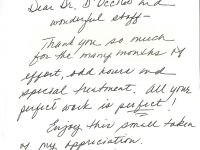 Dear Dr. D'Occhio and
wonderful staff—
Thank you so much
for the many months of
effort, odd hours and
special treatment. All your
perfect work is perfect!
Enjoy this small token
of my appreciation.